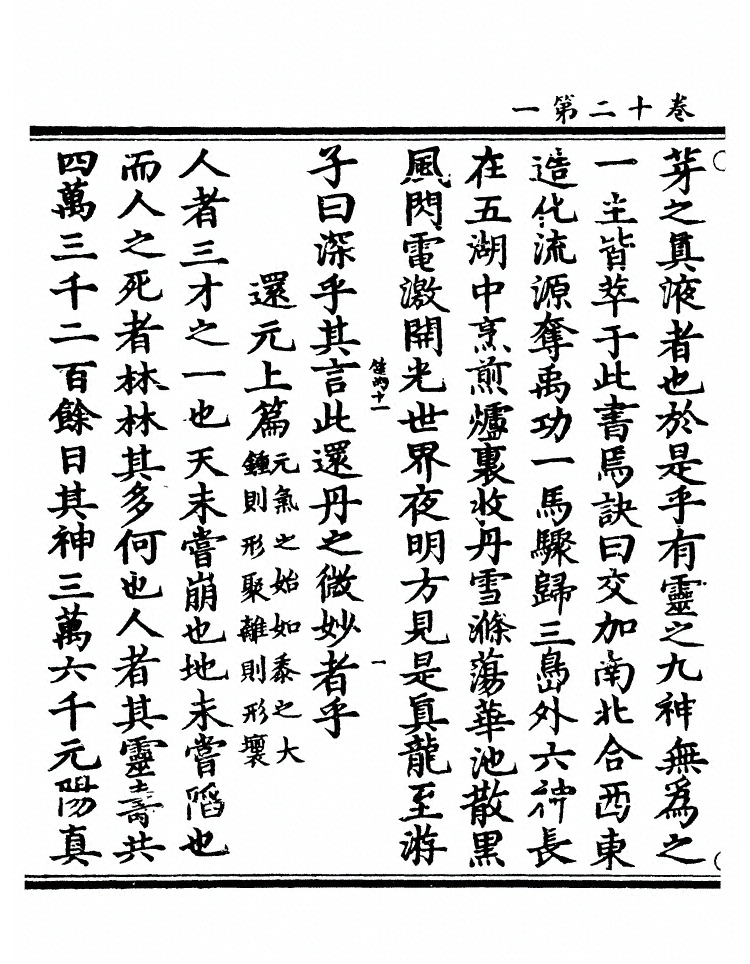 卷十二第一
芽之眞液者也於是乎有靈之九神無爲之
一主皆萃于此書焉訣曰交加南北合西東
造化流源奪禹功一馬驟歸三島外六神長
在五湖中烹煎爐裏收丹雪滌蕩華池散黑
風閃電激開光世界夜明方見是眞龍至游
子曰深乎其言此還丹之微妙者乎
十一
一
還元上篇
元氣之始如黍之大
鍾則形聚離則形壞
人者三才之一也天未嘗崩也地未嘗陷也
而人之死者林林其多何也人者其靈壽共
四萬三千二百餘日其神三萬六千元陽真